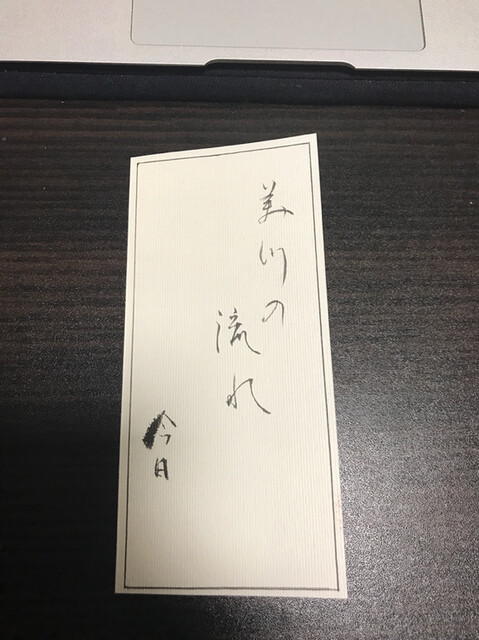 美川の
流れ
今日